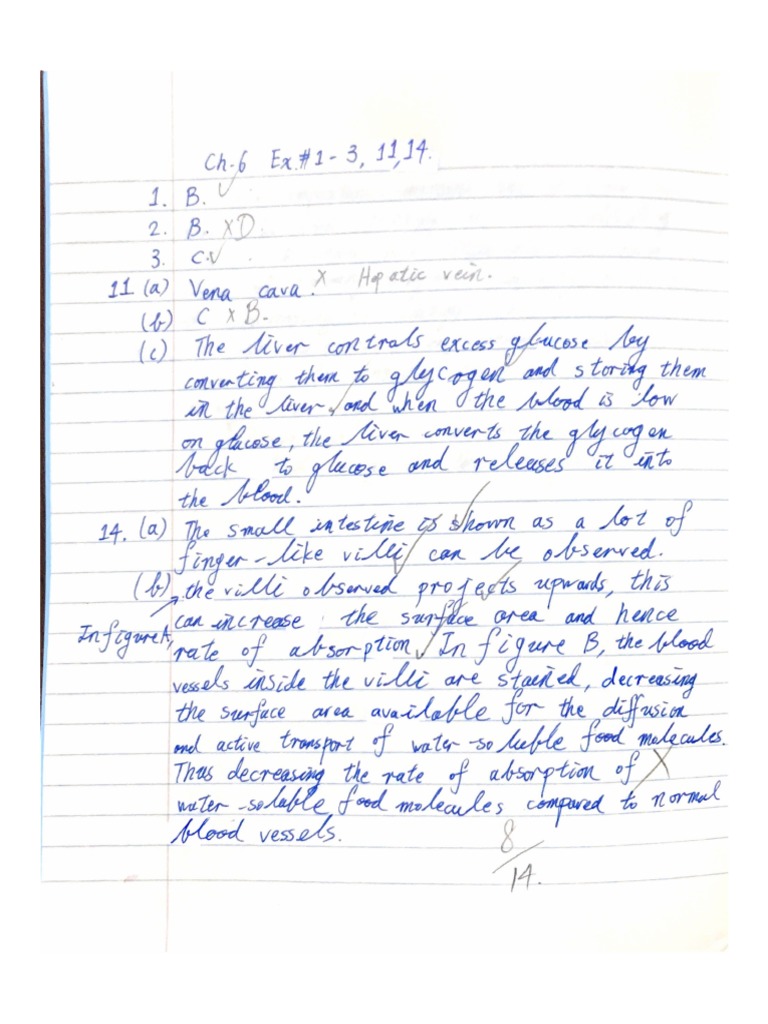 Ch.6 Ex.#1-3, 11,14.
1. B. ✓
2. B. X D.
3. C. ✓
11 (a) Vena cava. X Hepatic vein.
(b) C X B.
(c) The liver controls excess glucose by
converting them to glycogen and storing them
in the liver, and when the blood is low
on glucose, the liver converts the glycogen
back to glucose and releases it into
the blood.
14. (a) The small intestine is shown as a lot of
finger-like villi can be observed.
(b) the villi observed projects upwards, this
can increase the surface area and hence
In figure A, rate of absorption. In figure B, the blood
vessels inside the villi are stained, decreasing
the surface area available for the diffusion
and active transport of water-soluble food molecules.
Thus decreasing the rate of absorption of X
water-soluble food molecules compared to normal
blood vessels.
8
14.